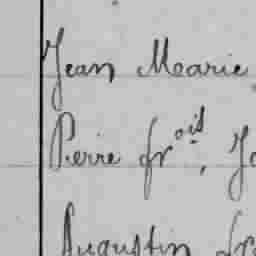 Jean Marie
Pierre frois, Jo
Augustin